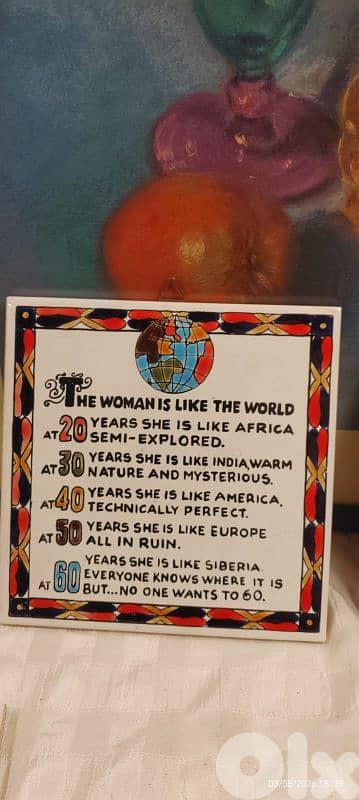 THE WOMAN IS LIKE THE WORLD
AT 20 YEARS SHE IS LIKE AFRICA
SEMI-EXPLORED.
AT 30 YEARS SHE IS LIKE INDIA, WARM
NATURE AND MYSTERIOUS.
AT 40 YEARS SHE IS LIKE AMERICA.
TECHNICALLY PERFECT.
AT 50 YEARS SHE IS LIKE EUROPE
ALL IN RUIN.
YEARS SHE IS LIKE SIBERIA.
AT 60 EVERYONE KNOWS WHERE IT IS
BUT...NO ONE WANTS TO GO.
olx